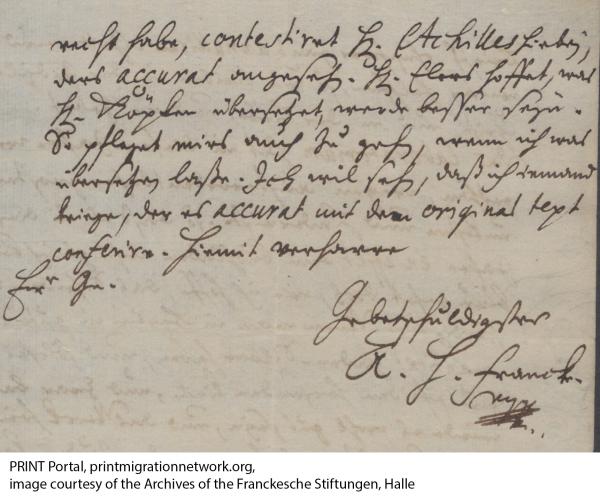 recht habe, contestiret H. Achilles hiebey,
ders accurat angesehen. H. Elers hoffet, was
H. Köpken übersetzet, werde besser seyn.
So pfleget mirs auch zu gehen, wenn ich was
übersetzen laße. Ich wil sehen, daß ich iemand
kriege, der es accurat mit dem original text
conferire. Hiemit verharre
Ew. Gn.
Gebetschuldigster
A. H. Franck.
PRINT Portal, printmigrationnetwork.org,
image courtesy of the Archives of the Franckesche Stiftungen, Halle